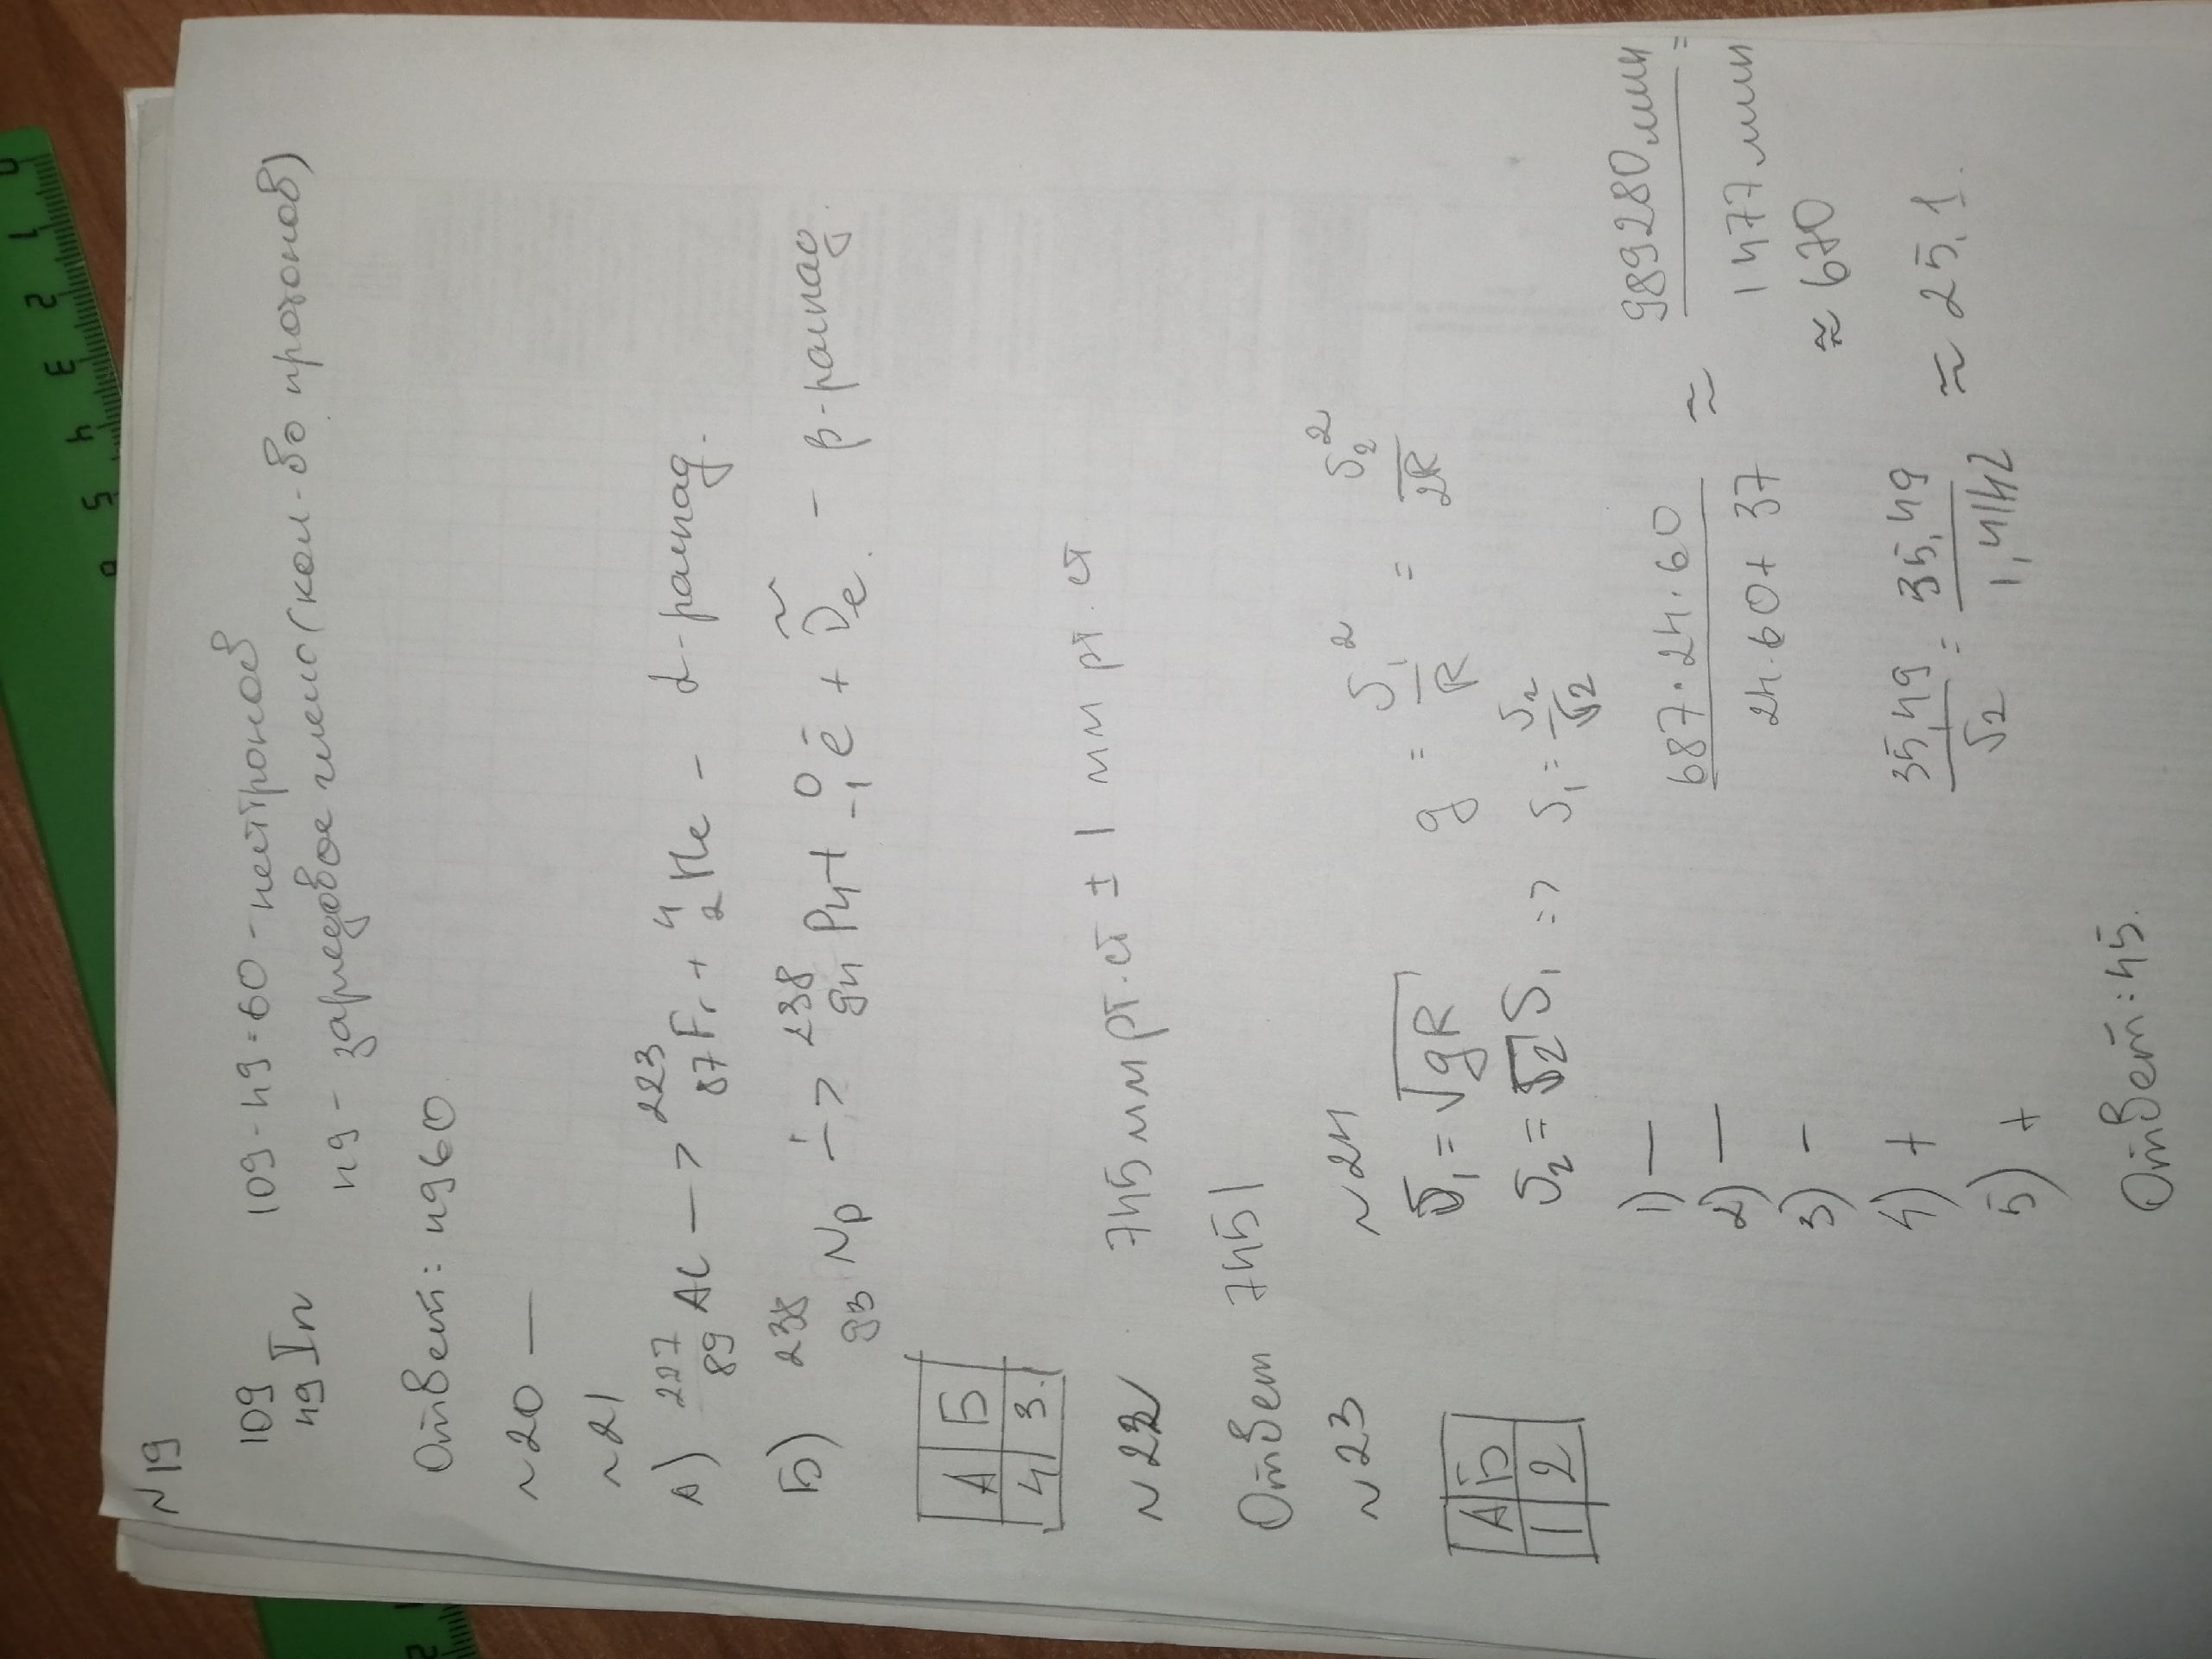 0 1 2 3 4 5 6
№19
¹⁰⁹₄₉In 109-49=60 - нейтронов
49 - зарядовое число (кол-во протонов)
Ответ: 4960
№20 —
№21
А) ²²⁷₈₉Ac —> ²²³₈₇Fr + ⁴₂He - α-распад.
Б) ²³⁸₉₃Np —> ²³⁸₉₄Pu + ⁰₋₁e⁻ + ν̃e. - β-распад.
А Б
4 3.
№22 745 мм рт.ст ± 1 мм рт.ст
Ответ 7451
№23
А Б
1 2
№24
υ₁ = √gR g = υ₁²/R = υ₂²/2R
υ₂ = √2 υ₁ => υ₁ = υ₂/√2
1) —
2) —
3) -
4) +
5) +
687·24·60 / 24·60+37 ≈ 989280 мин / 1477 мин =
≈ 670
35,49/√2 = 35,49/1,4142 ≈ 25,1.
Ответ: 45.